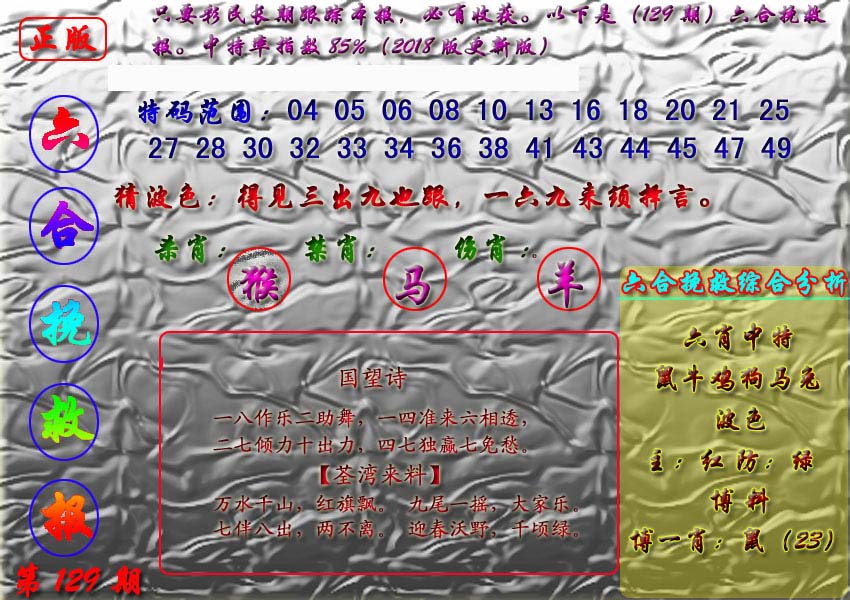 正版
只要彩民长期跟踪本报，必有收获。以下是（129期）六合挽救
报。中特率指数85%（2018版更新版）
六合挽救报
第129期
特码范围：04 05 06 08 10 13 16 18 20 21 25
27 28 30 32 33 34 36 38 41 43 44 45 47 49
猜波色：得见三出九也跟，一六九来须择言。
杀肖：猴 禁肖：马 伤肖：羊。
国望诗
一八作乐二助舞，一四准来六相透，
二七倾力十出力，四七独赢七免愁。
【荃湾来料】
万水千山，红旗飘。 九尾一摇，大家乐。
七伴八出，两不离。 迎春沃野，千顷绿。
六合挽救综合分析
六肖中特
鼠牛鸡狗马兔
波色
主：红防：绿
博料
博一肖：鼠（23）